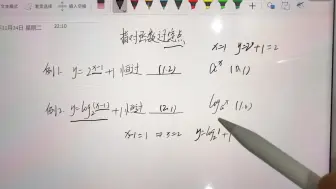 指对函数过定点
例1. y=2^(x-1)+1 恒过 (1,2)
x=1 y=2^0+1=2
a^x (0,1)
例2. y=log_2^(x-1)+1 恒过 (2,1)
log_a^x (1,0)
x-1=1 ⇒ x=2 y=log_2^1+1